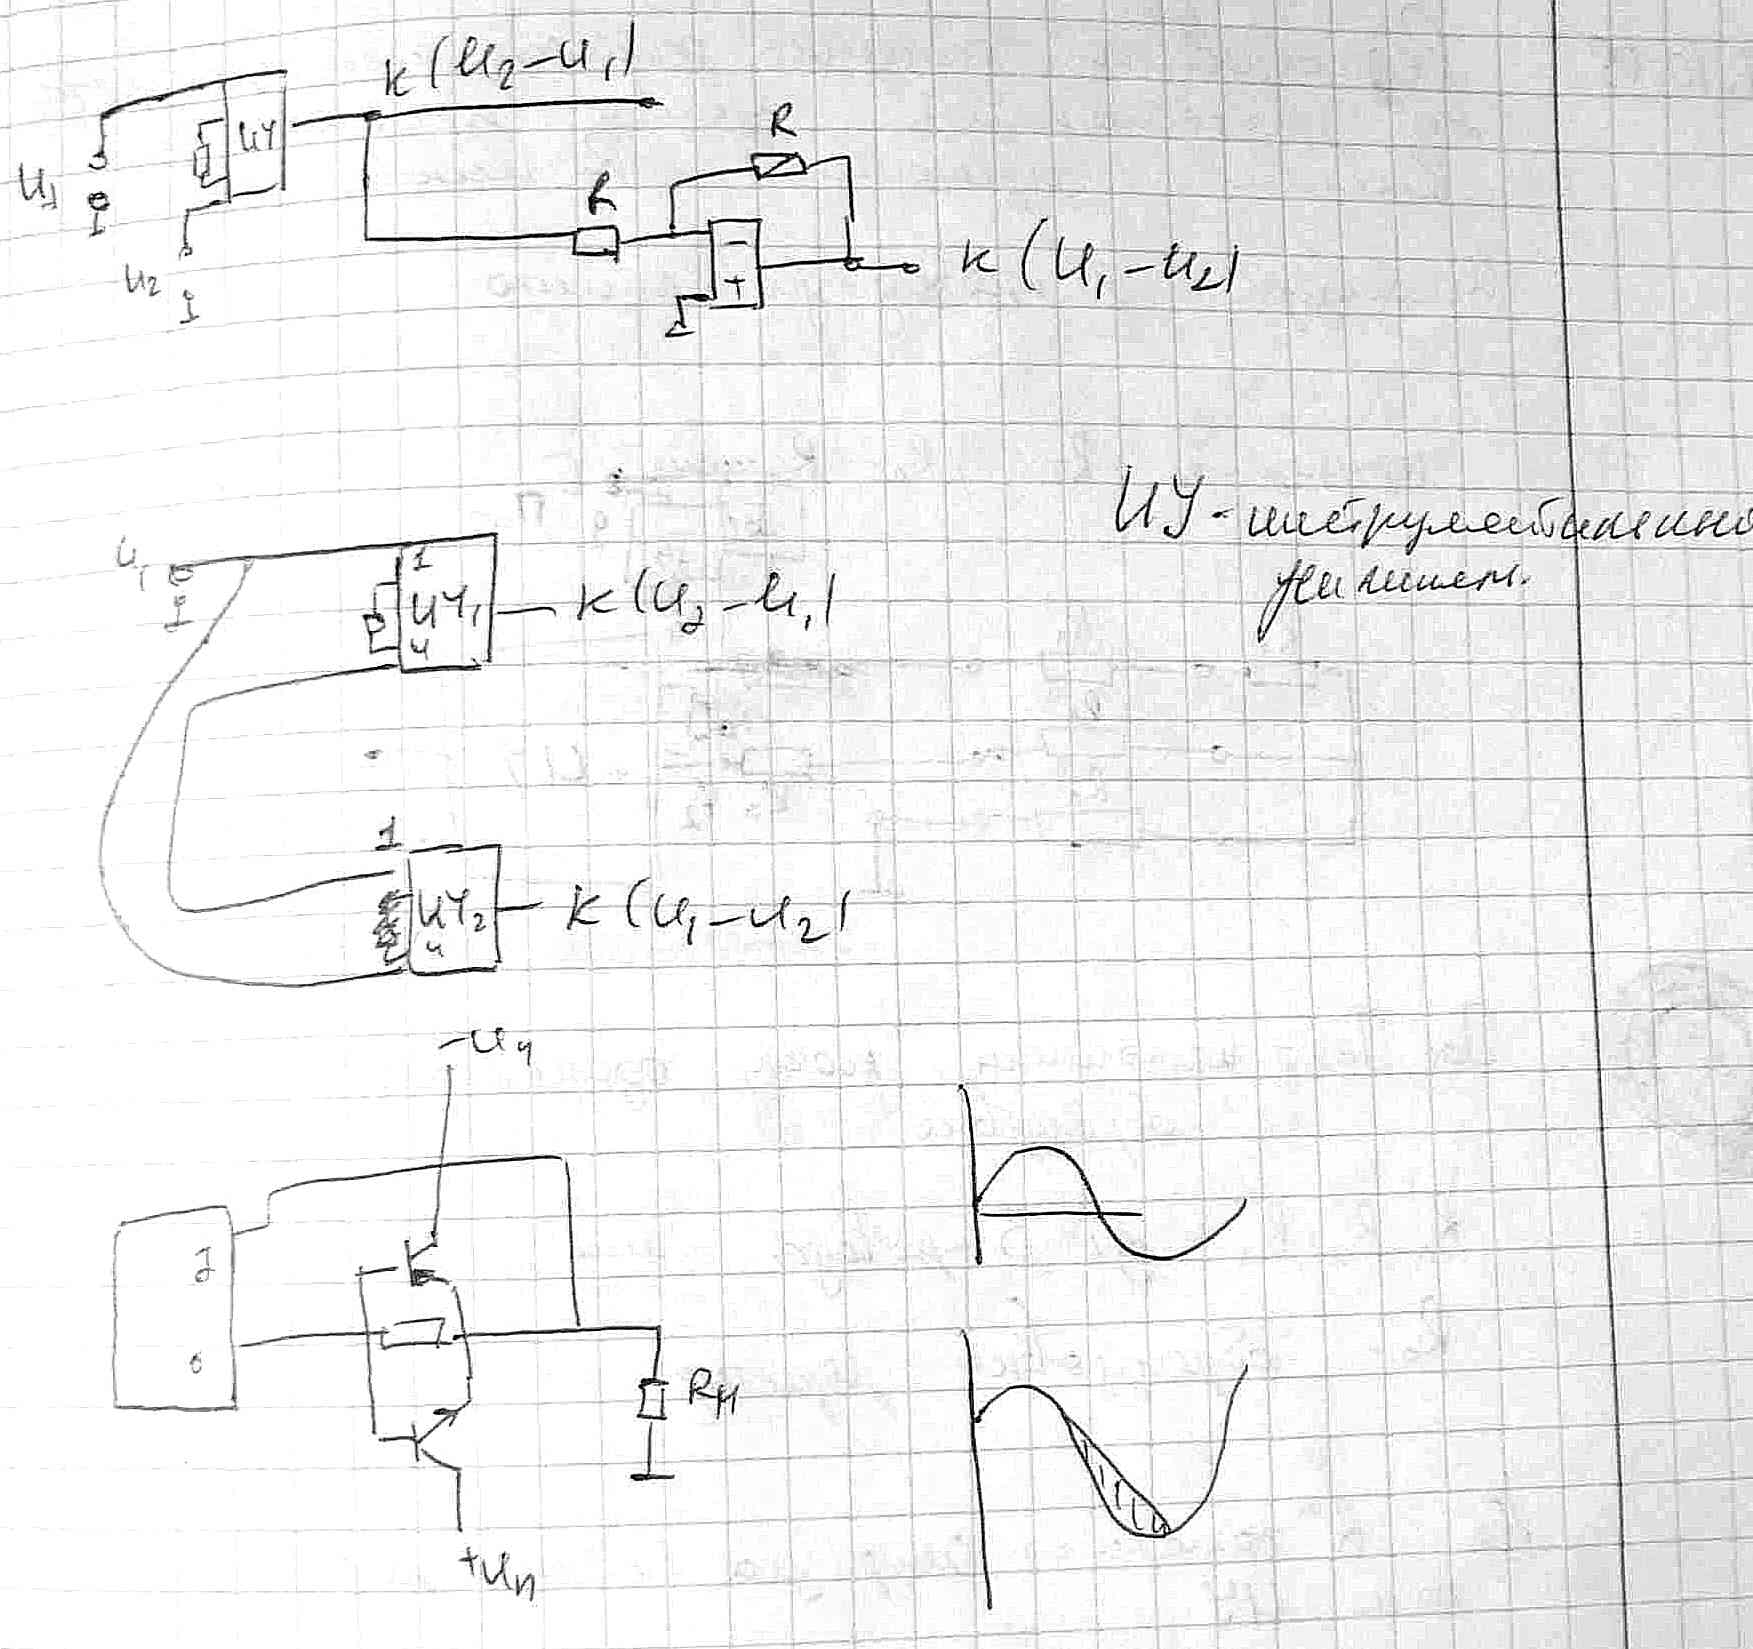 K (U₂ - U₁)
ИУ
U₁
U₂
R
R
-
+
K (U₁ - U₂)
ИУ - инструментально
усилит.
U₁
1
ИУ₁
4
K (U₂ - U₁)
1
ИУ₂
4
K (U₁ - U₂)
-Uп
Rн
+Uп